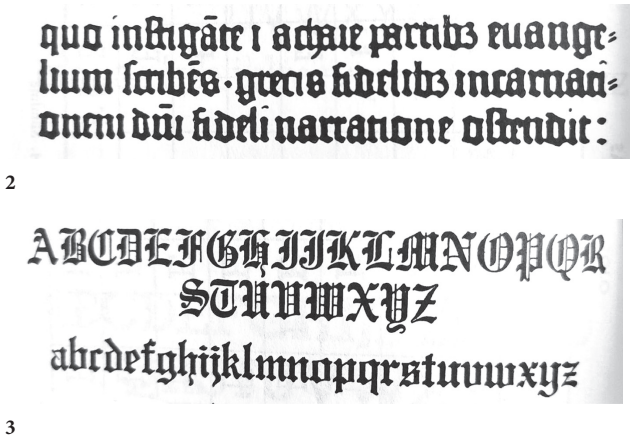 quo inſtigāte i achaie partibꝫ euange⸗
lium ſcribēs · grecis fidelibꝫ incarnati⸗
onem dn̄i fideli narratione oſtendit :
2
ABCDEFGHIJKLMNOPQR
STUVWXYZ
abcdefghijklmnopqrstuvwxyz
3